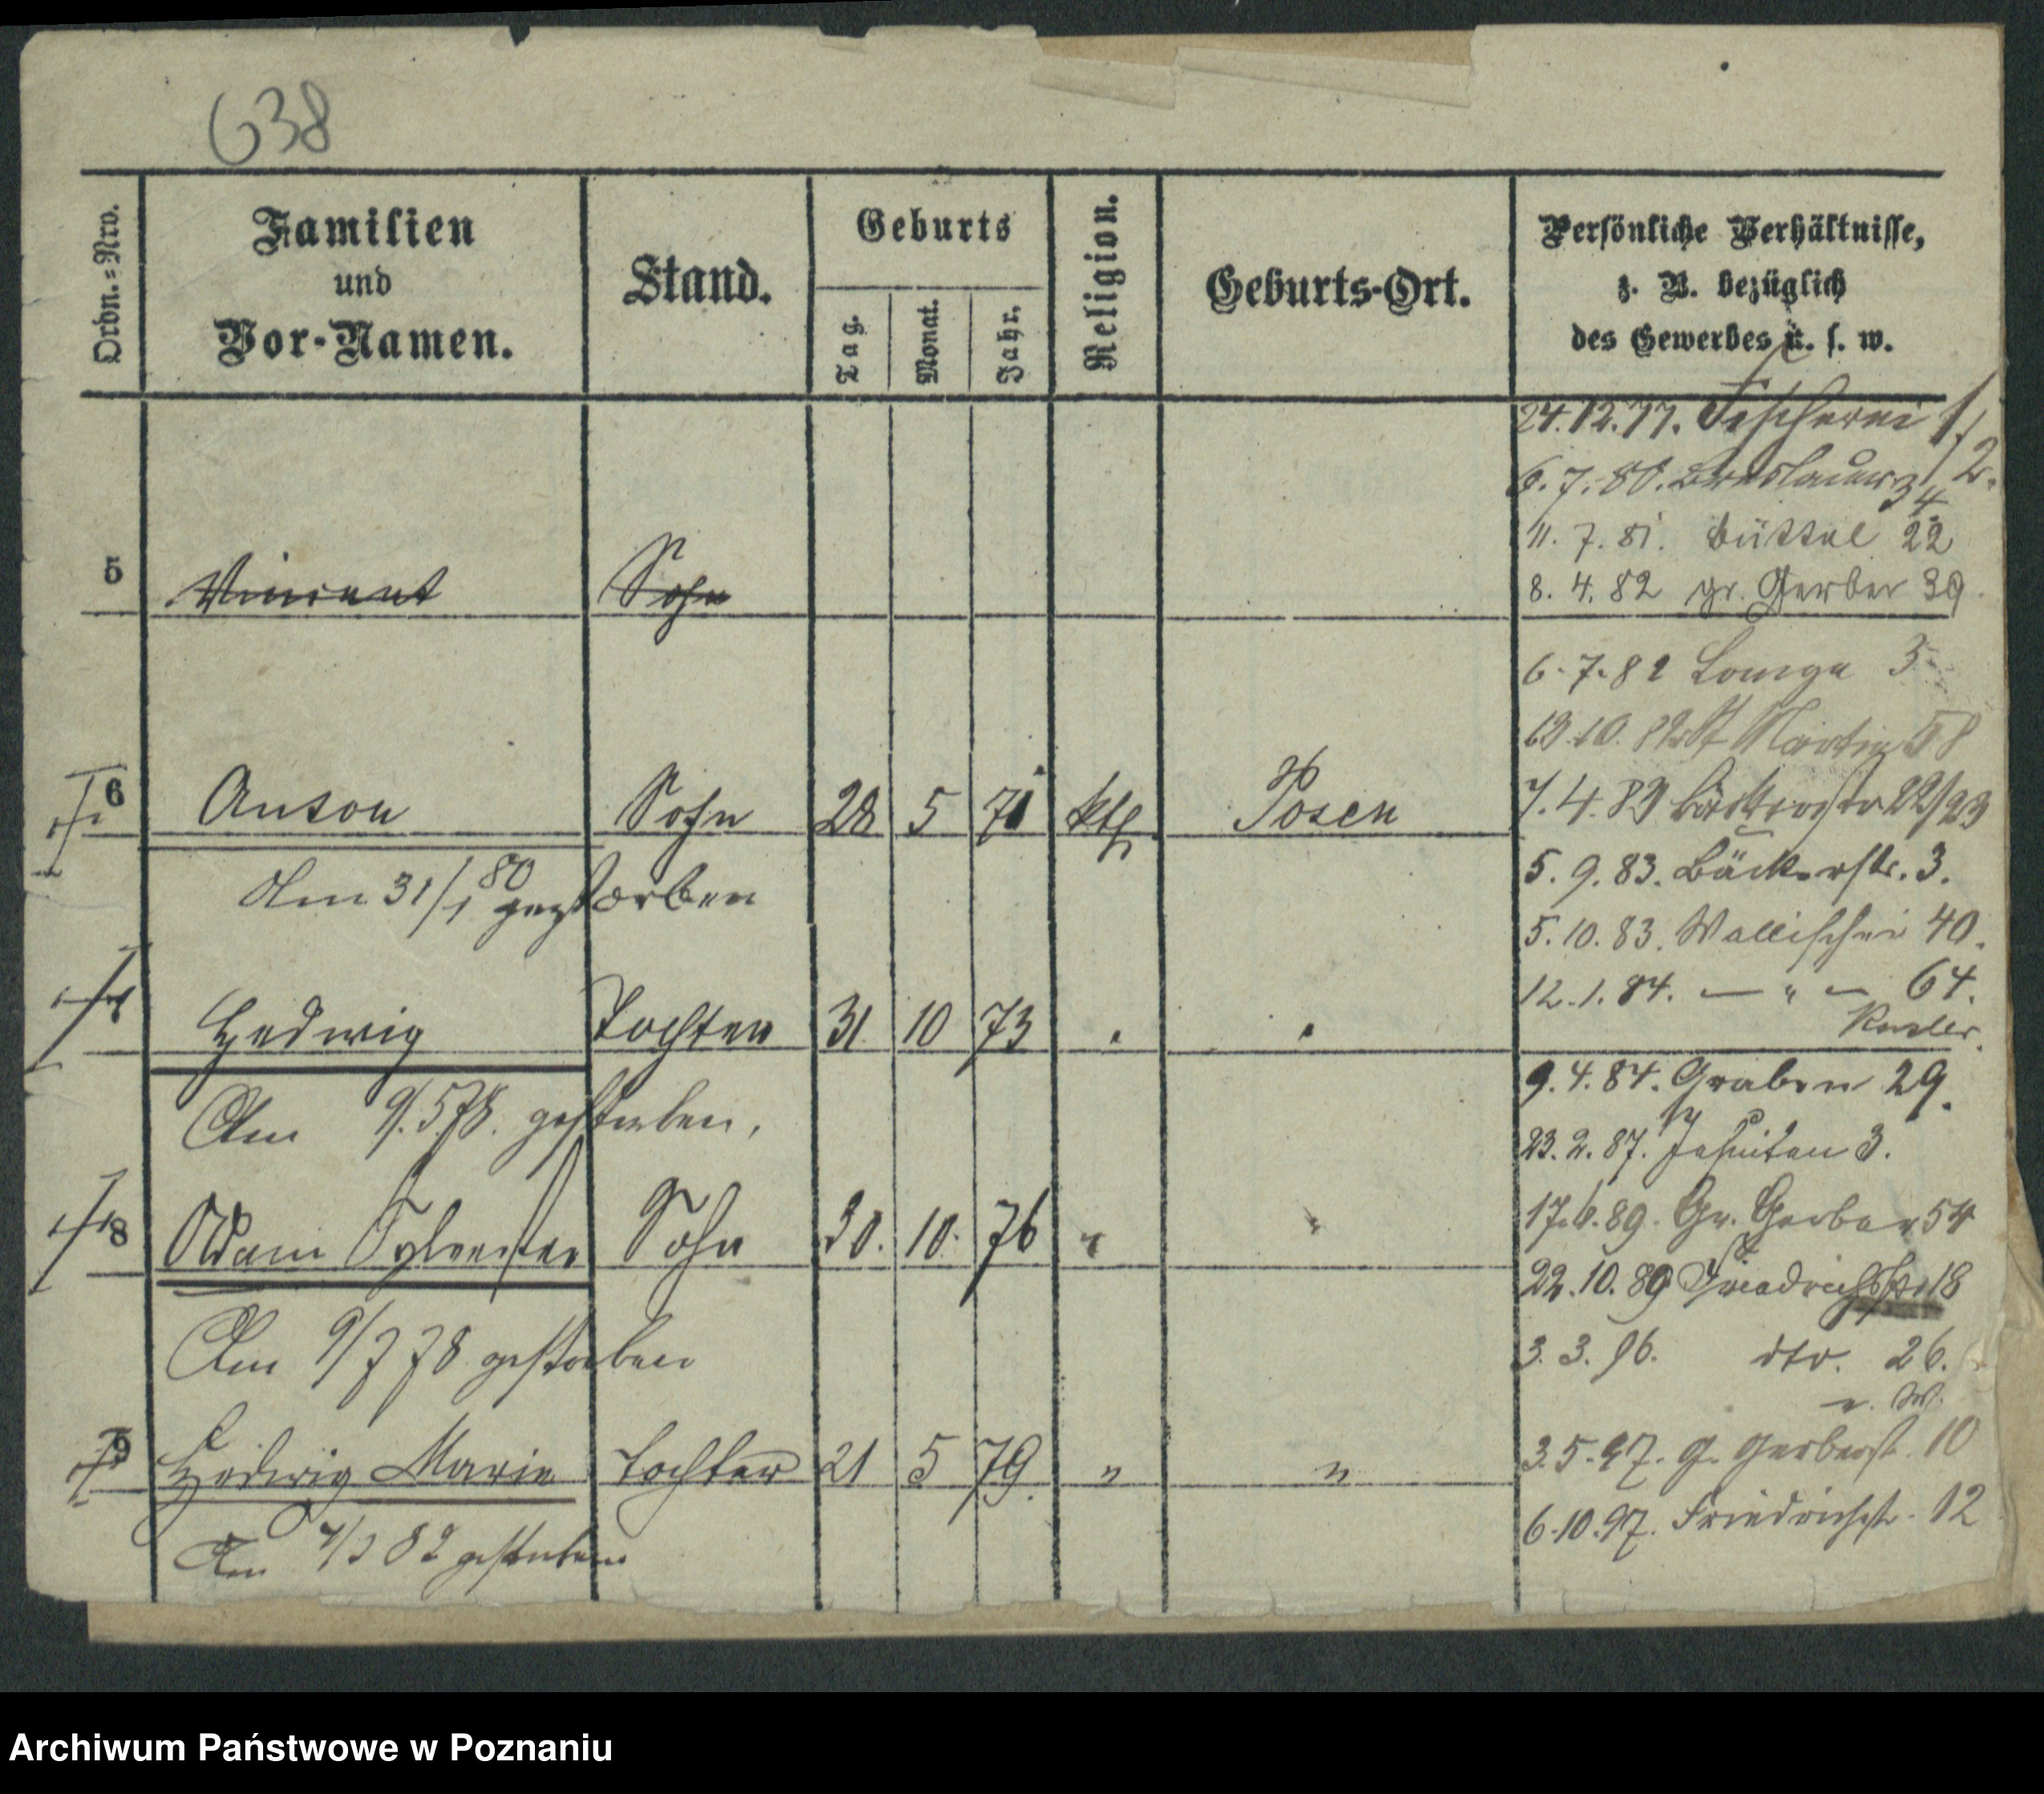 638
Ordn.=Nro.
Familien
und
Vor-Namen.
Stand.
Geburts
Tag.
Monat.
Jahr.
Religion.
Geburts-Ort.
Persönliche Verhältnisse,
z. B. bezüglich
des Gewerbes u. s. w.
24.12.77. Fischerei
6.7.80. Breslauer 34
11.7.81. Büttel 22
5 Vincent Sohn
8.4.82 gr. Gerber 39
6.7.82 3
St Martin 58
6 Anton Sohn 28 5 71 kth Posen
7.4.83 Bäckerstr 22/23
Am 31/1 80 gestorben
5.9.83. Bäckerstr. 3.
5.10.83. Wallischei 40.
12.1.84. — " — 64.
Hedwig Tochter 31 10 73
9.4.84. Graben 29.
Am 9.5.78. gestorben,
23.2.87. Jesuiten 3.
17.6.89. Gr. Gerber 54
8 Adam Sylvester Sohn 30. 10. 76 "
22.10.89 Friedrichstr 18
Am 9/7 78 gestorben
3.3.96. dto. 26.
9 Hedwig Marie Tochter 21 5 79. " "
3.5.97. g. Gerberst. 10
6.10.97. Friedrichst. 12
Am 82 gestorben
Archiwum Państwowe w Poznaniu